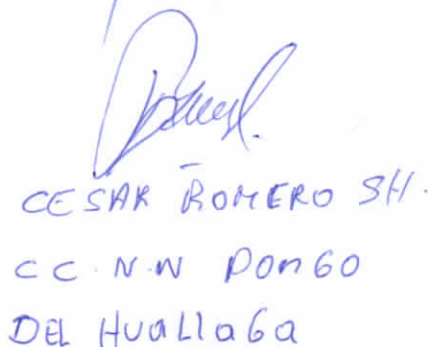 CESAR ROMERO SH.
CC.N.N PONGO
DEL HUALLAGA